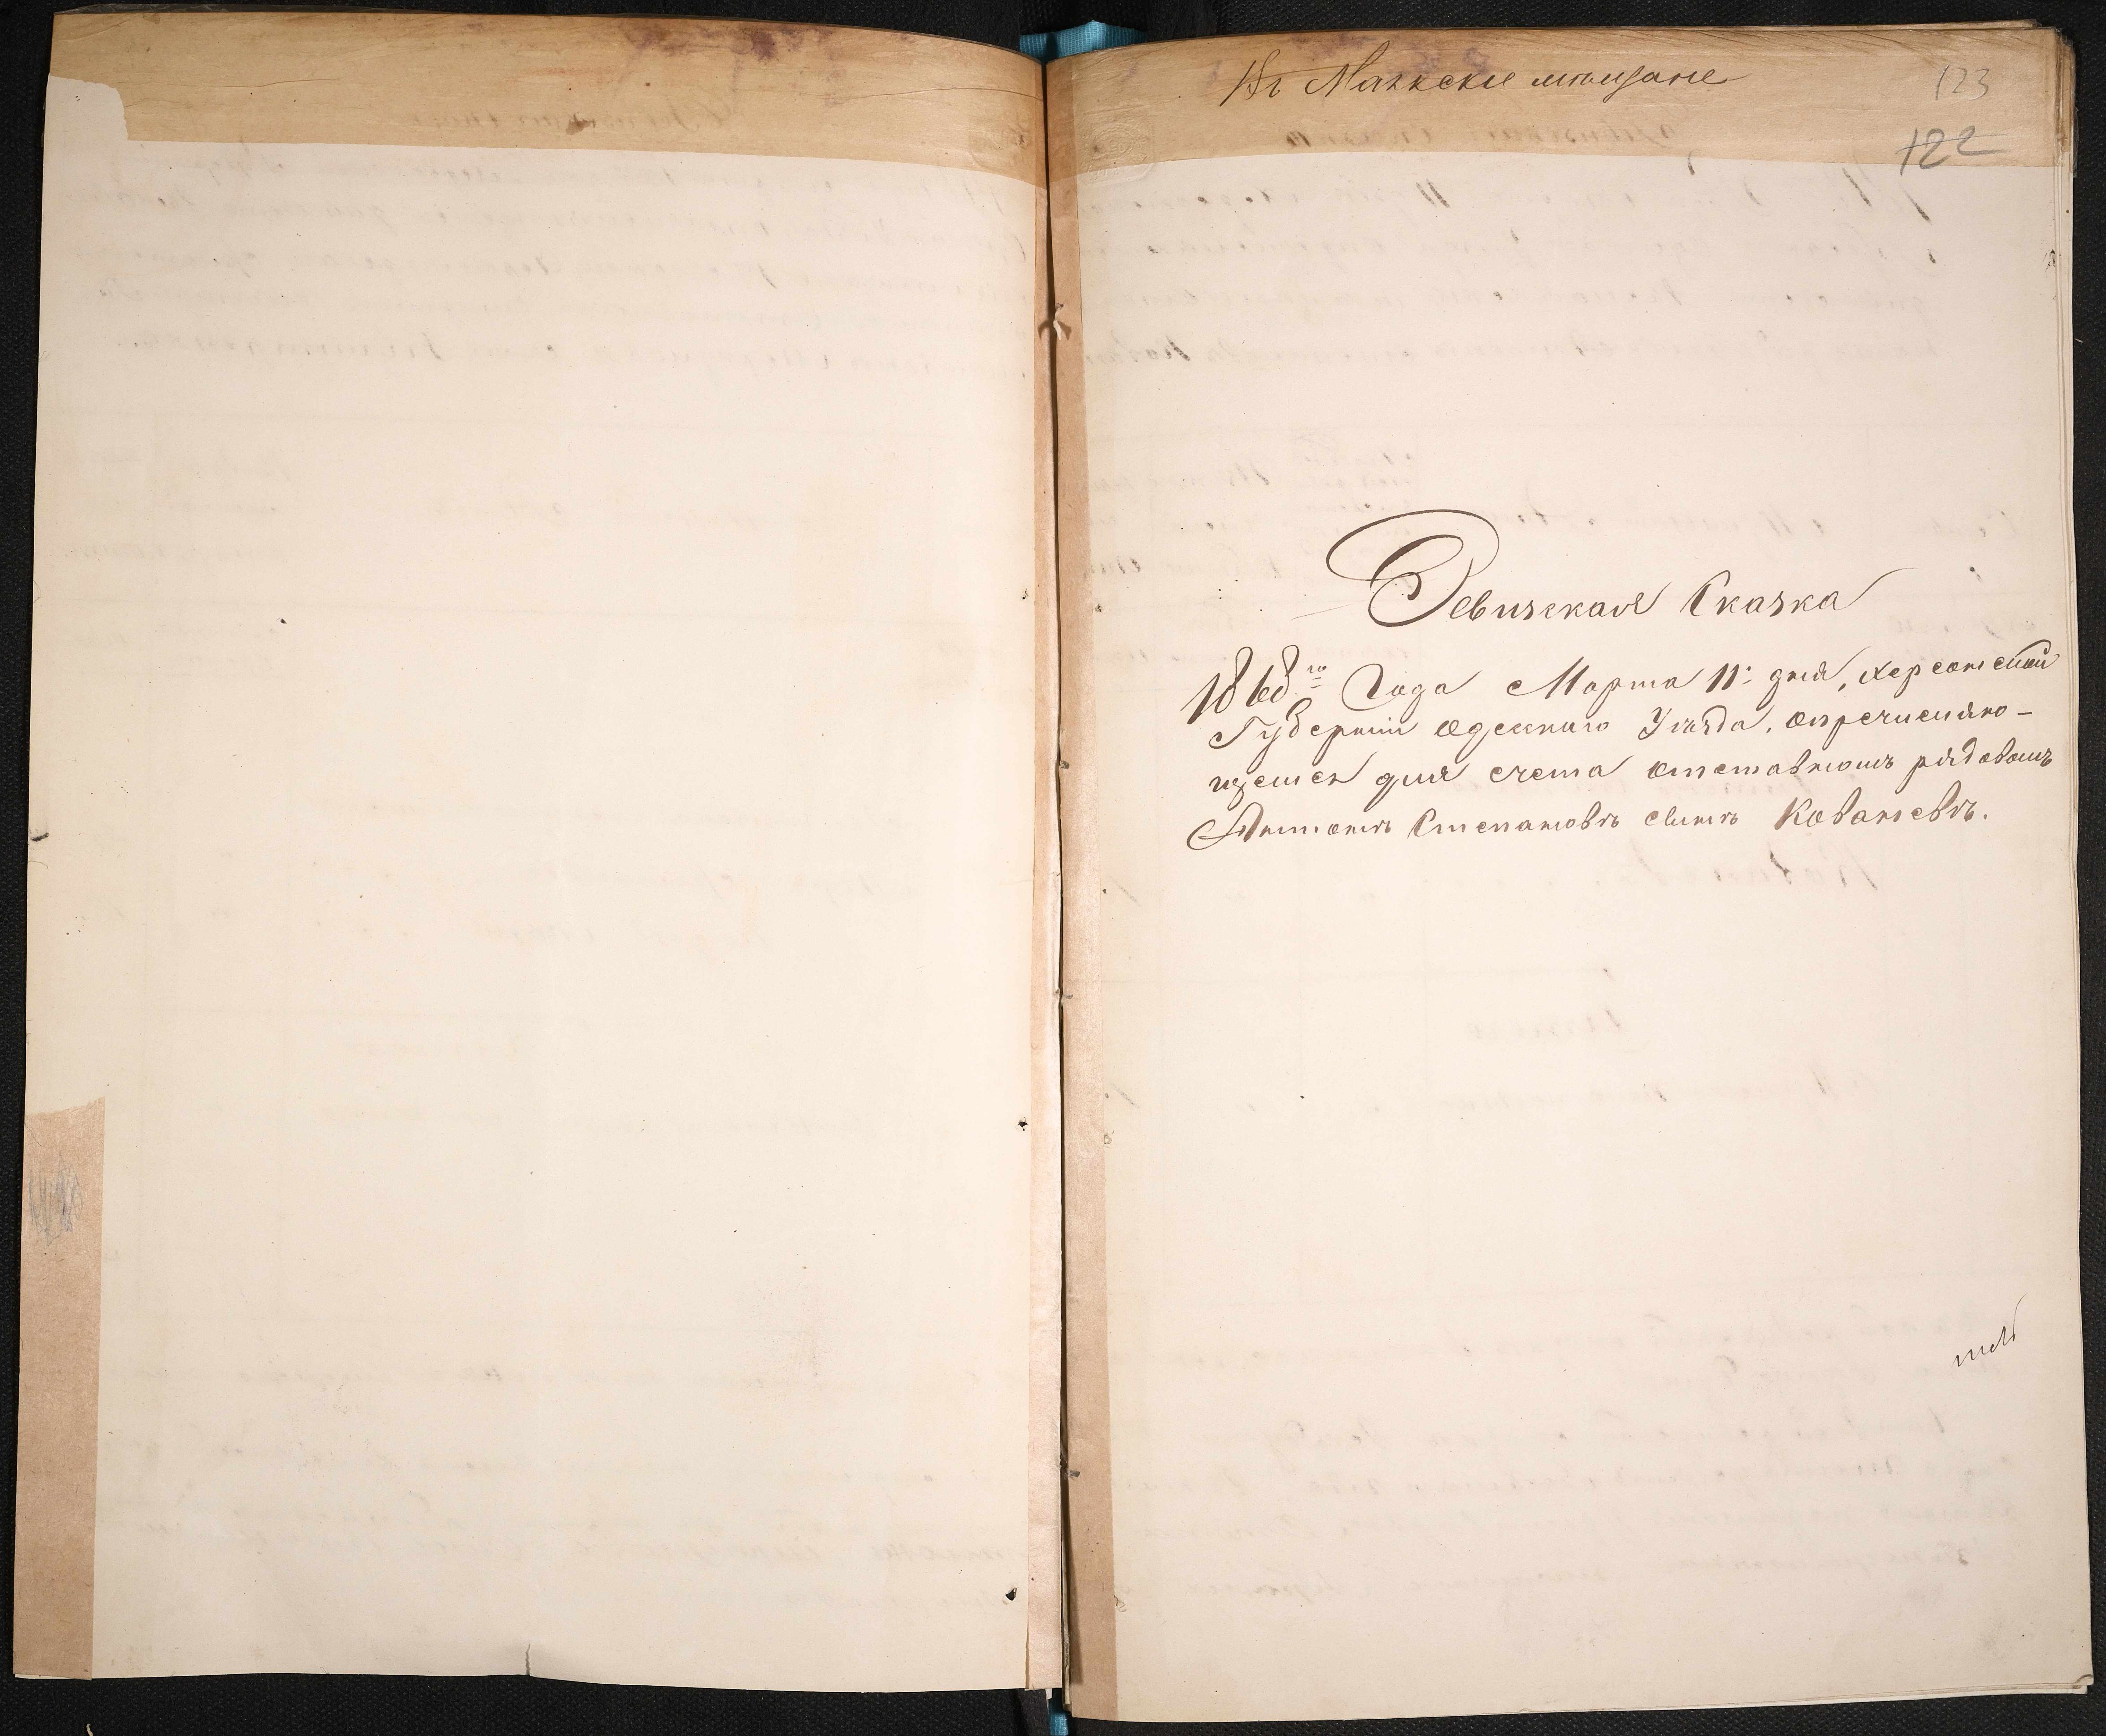 Въ Маякскіе мѣщане
123
122
Ревизская Сказка
1868го Года Марта 11: дня, Херсонской
Губерніи Одесскаго Уѣзда, опричисляю-
щемся для счета отставномъ рядовомъ
Антонъ Степановъ сынъ Ковалевъ.